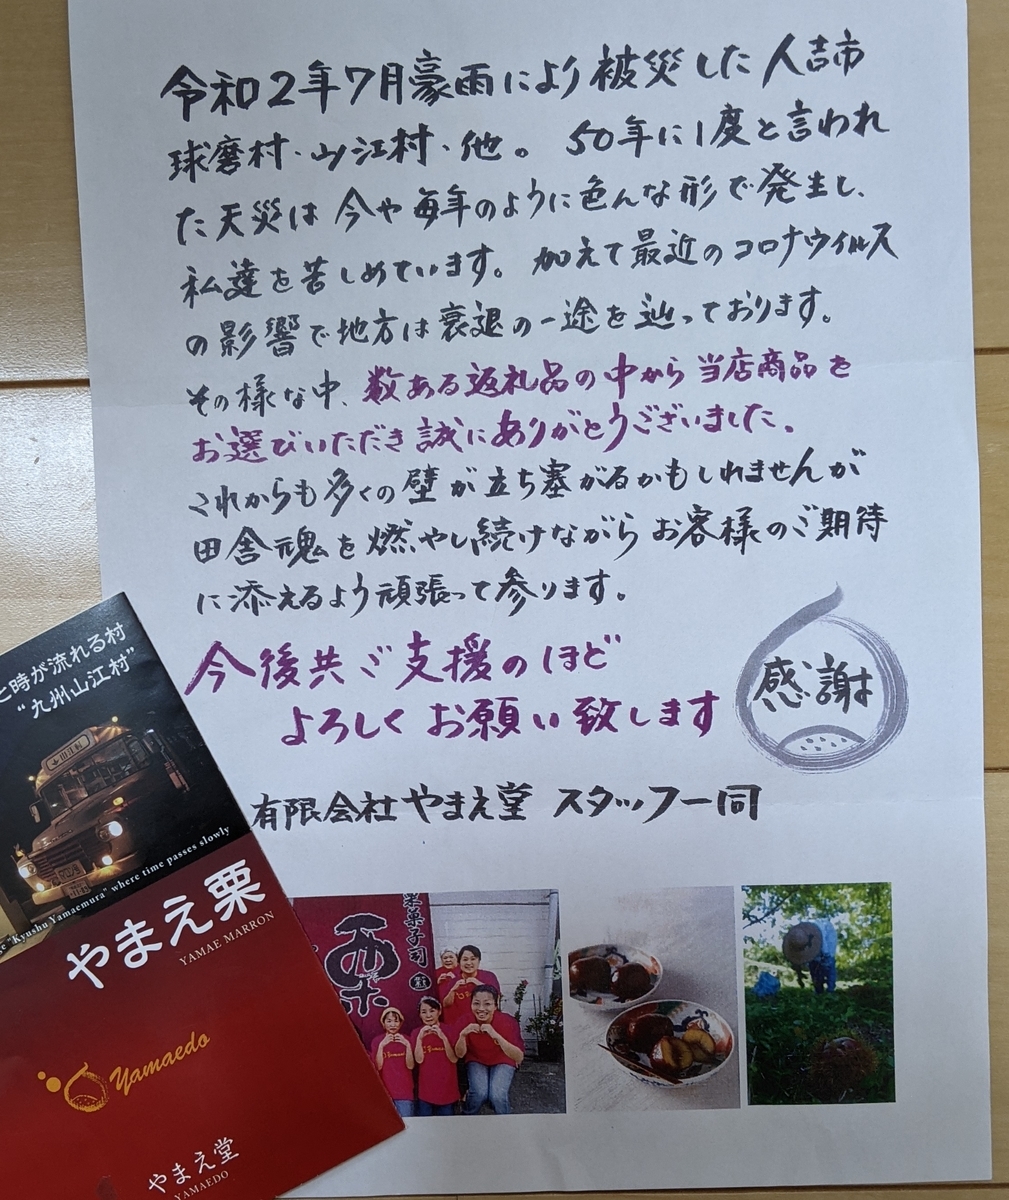 令和2年7月豪雨により被災した人吉市
球磨村・山江村・他。50年に1度と言われ
た天災は今や毎年のように色んな形で発生し、
私達を苦しめています。加えて最近のコロナウイルス
の影響で地方は衰退の一途を辿っております。
その様な中、数ある返礼品の中から当店商品を
お選びいただき誠にありがとうございました。
これからも多くの壁が立ち塞がるかもしれませんが
田舎魂を燃やし続けながらお客様のご期待
に添えるよう頑張って参ります。
今後共ご支援のほど
よろしくお願い致します
感謝
有限会社やまえ堂 スタッフ一同
と時が流れる村
"九州山江村"
"Kyushu Yamaemura" where time passes slowly
やまえ栗
YAMAE MARRON
Yamaedo
やまえ堂
YAMAEDO
栗菓子司
栗